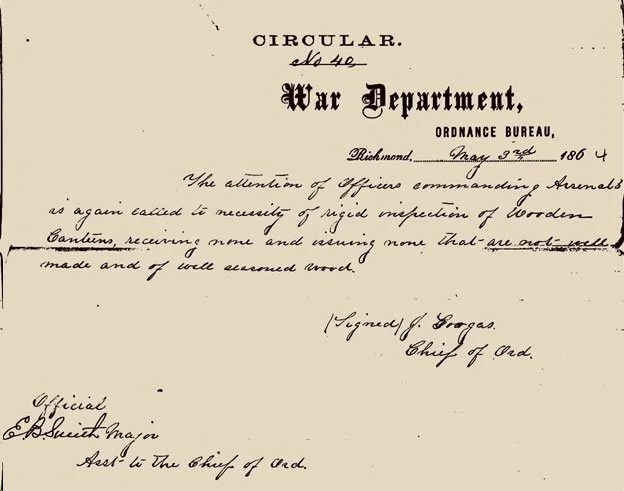 CIRCULAR.
No 40,
War Department,
ORDNANCE BUREAU,
Richmond, May 3rd 1864
The attention of Officers commanding Arsenals
is again called to necessity of rigid inspection of Wooden
Canteens, receiving none and issuing none that are not well
made and of well seasoned wood.
(Signed) J. Gorgas.
Chief of Ord.
Official
E.B. Smith Major
Asst to the Chief of Ord.